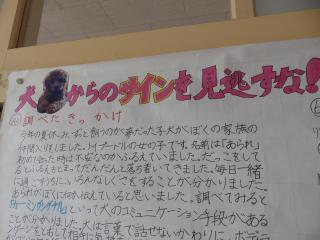 犬からのサインを見逃すな!
調べたきっかけ
今年の夏休み、ずっと飼うのが夢だった子犬がぼくの家族の
仲間入りしました。トイプードルの女の子です。名前は「あられ」
初めて会った時は不安なのかふるえていました。だっこをして
るといろんもとまってだんだんと落ち着いてきました。毎日一緒
に過ごすうちに、いろんなしぐさをすることが分かりました。
あられがぼくに何か伝えていると思いました。調べてみると
「カーミングシグナル」といって犬のコミュニケーション手段がある
ことが分かりました。犬は言葉で話せないかわりに、ボディ